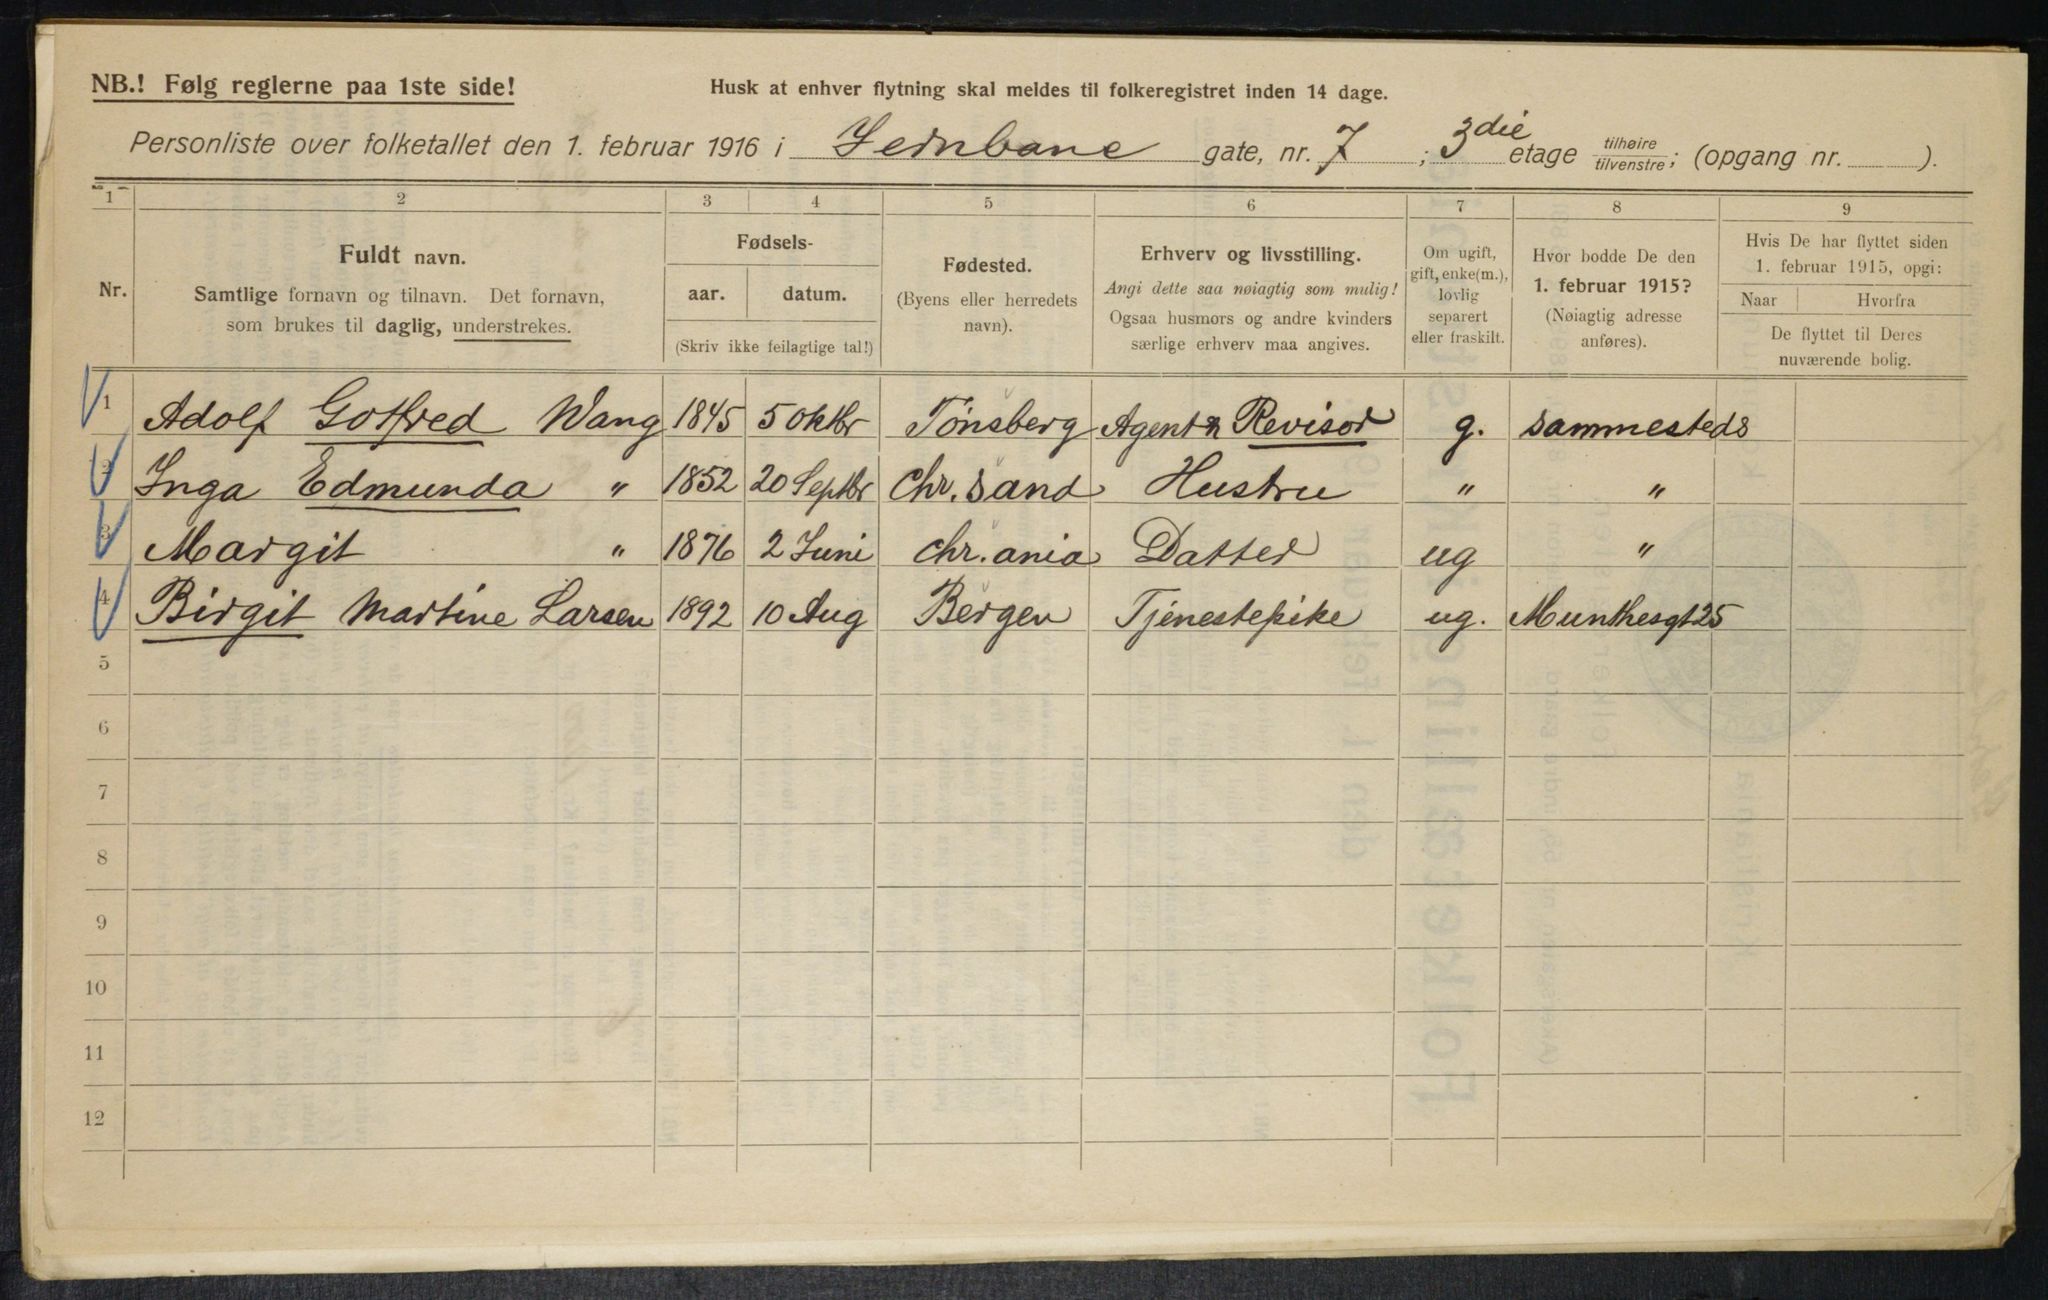 NB.! Følg reglerne paa 1ste side!
Husk at enhver flytning skal meldes til folkeregistret inden 14 dage.
Personliste over folketallet den 1. februar 1916 i Jernbane gate, nr. 7 ; 3die etage tilhøire tilvenstre; (opgang nr. ).
1 2 3 4 5 6 7 8 9
Nr.
Fuldt navn.
Samtlige fornavn og tilnavn. Det fornavn,
som brukes til daglig, understrekes.
Fødsels-
aar. datum.
(Skriv ikke feilagtige tal!)
Fødested.
(Byens eller herredets
navn).
Erhverv og livsstilling.
Angi dette saa nøiagtig som mulig!
Ogsaa husmors og andre kvinders
særlige erhverv maa angives.
Om ugift,
gift, enke(m.),
lovlig
separert
eller fraskilt.
Hvor bodde De den
1. februar 1915?
(Nøiagtig adresse
anføres).
Hvis De har flyttet siden
1. februar 1915, opgi:
Naar Hvorfra
De flyttet til Deres
nuværende bolig.
1 Adolf Gotfred Wang 1845 5 Oktbr Tønsberg Agent & Revisor g. sammesteds
2 Inga Edmunda " 1852 20 Septbr Chr. sand Hustru " "
3 Margit " 1876 2 Juni Chr. ania Datter ug "
4 Birgit Martine Larsen 1892 10 Aug Bergen Tjenestepike ug. Munthesgt 25
5
6
7
8
9
10
11
12